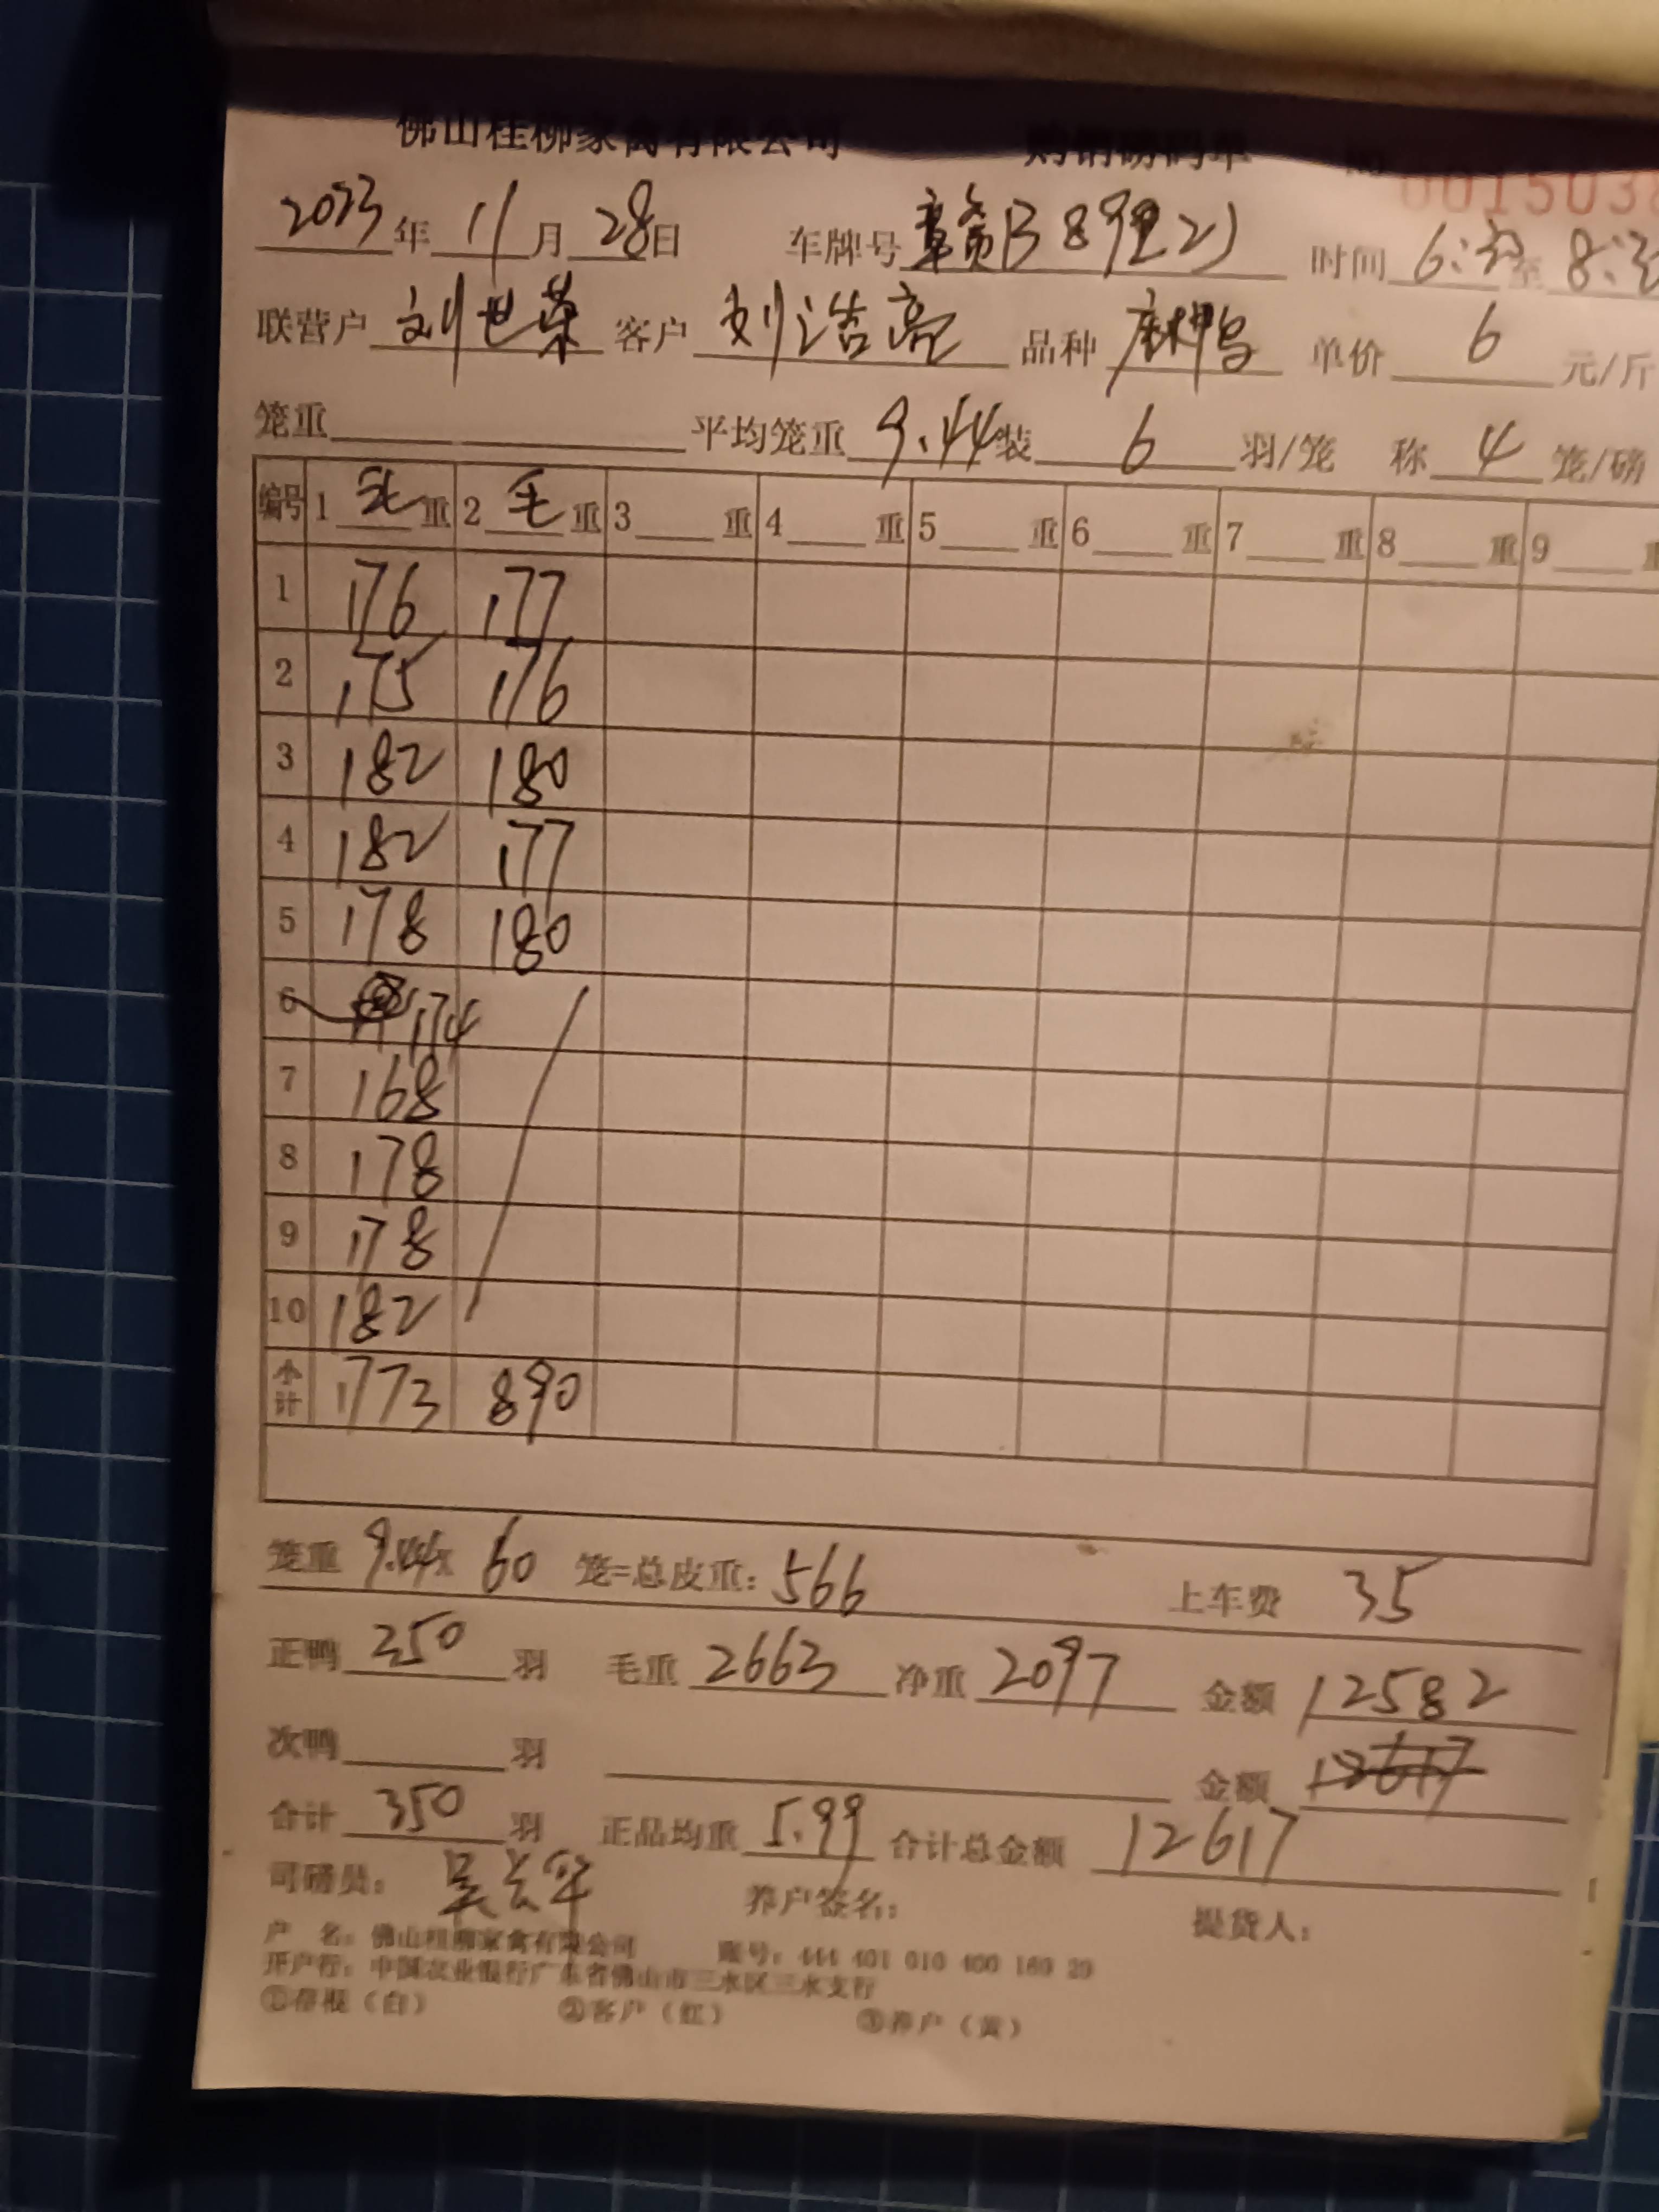 佛山桂柳家禽有限公司 购销磅码单
2023年11月28日 车牌号赣B 时间6:30至8:3
联营户刘世荣 客户刘浩亮 品种麻鸭 单价6元/斤
笼重 平均笼重9.44装6羽/笼 称4笼/磅
编号 1毛重 2毛重 3重 4重 5重 6重 7重 8重 9
1 176 177
2 175 176
3 182 180
4 182 177
5 178 180
6 174
7 168
8 178
9 178
10 182
小计 1773 890
笼重9.44x60笼=总皮重:566 上车费35
正鸭350羽 毛重2663净重2097 金额12582
次鸭羽 金额12617
合计350羽 正品均重5.99合计总金额12617
司磅员: 养户签名: 提货人:
户 名:佛山桂柳家禽有限公司 账号:444 401 010 400 169 29
开户行:中国农业银行广东省佛山市三水区三水支行
①存根(白) ②客户(红) ③养户(黄)